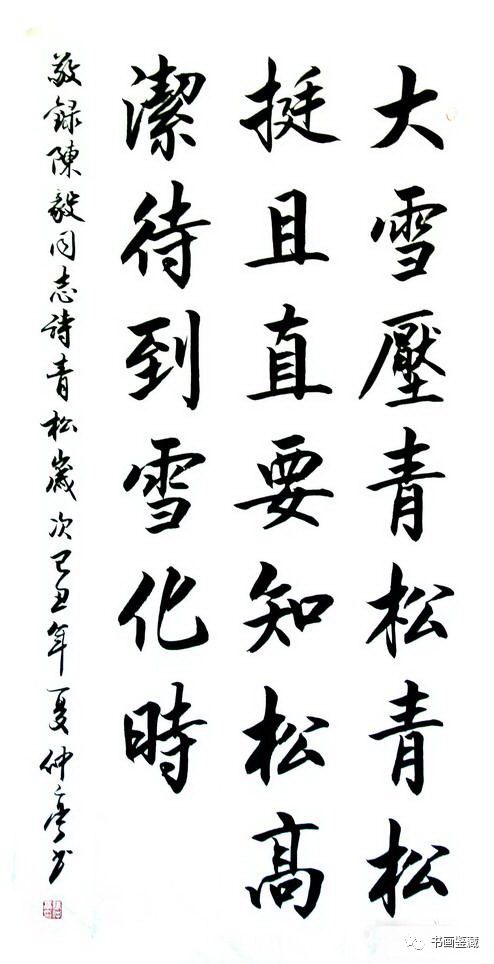 大雪壓青松青松
挺且直要知松高
潔待到雪化時
敬録陳毅同志詩青松歲次己丑年夏仲亭书
书画鉴藏